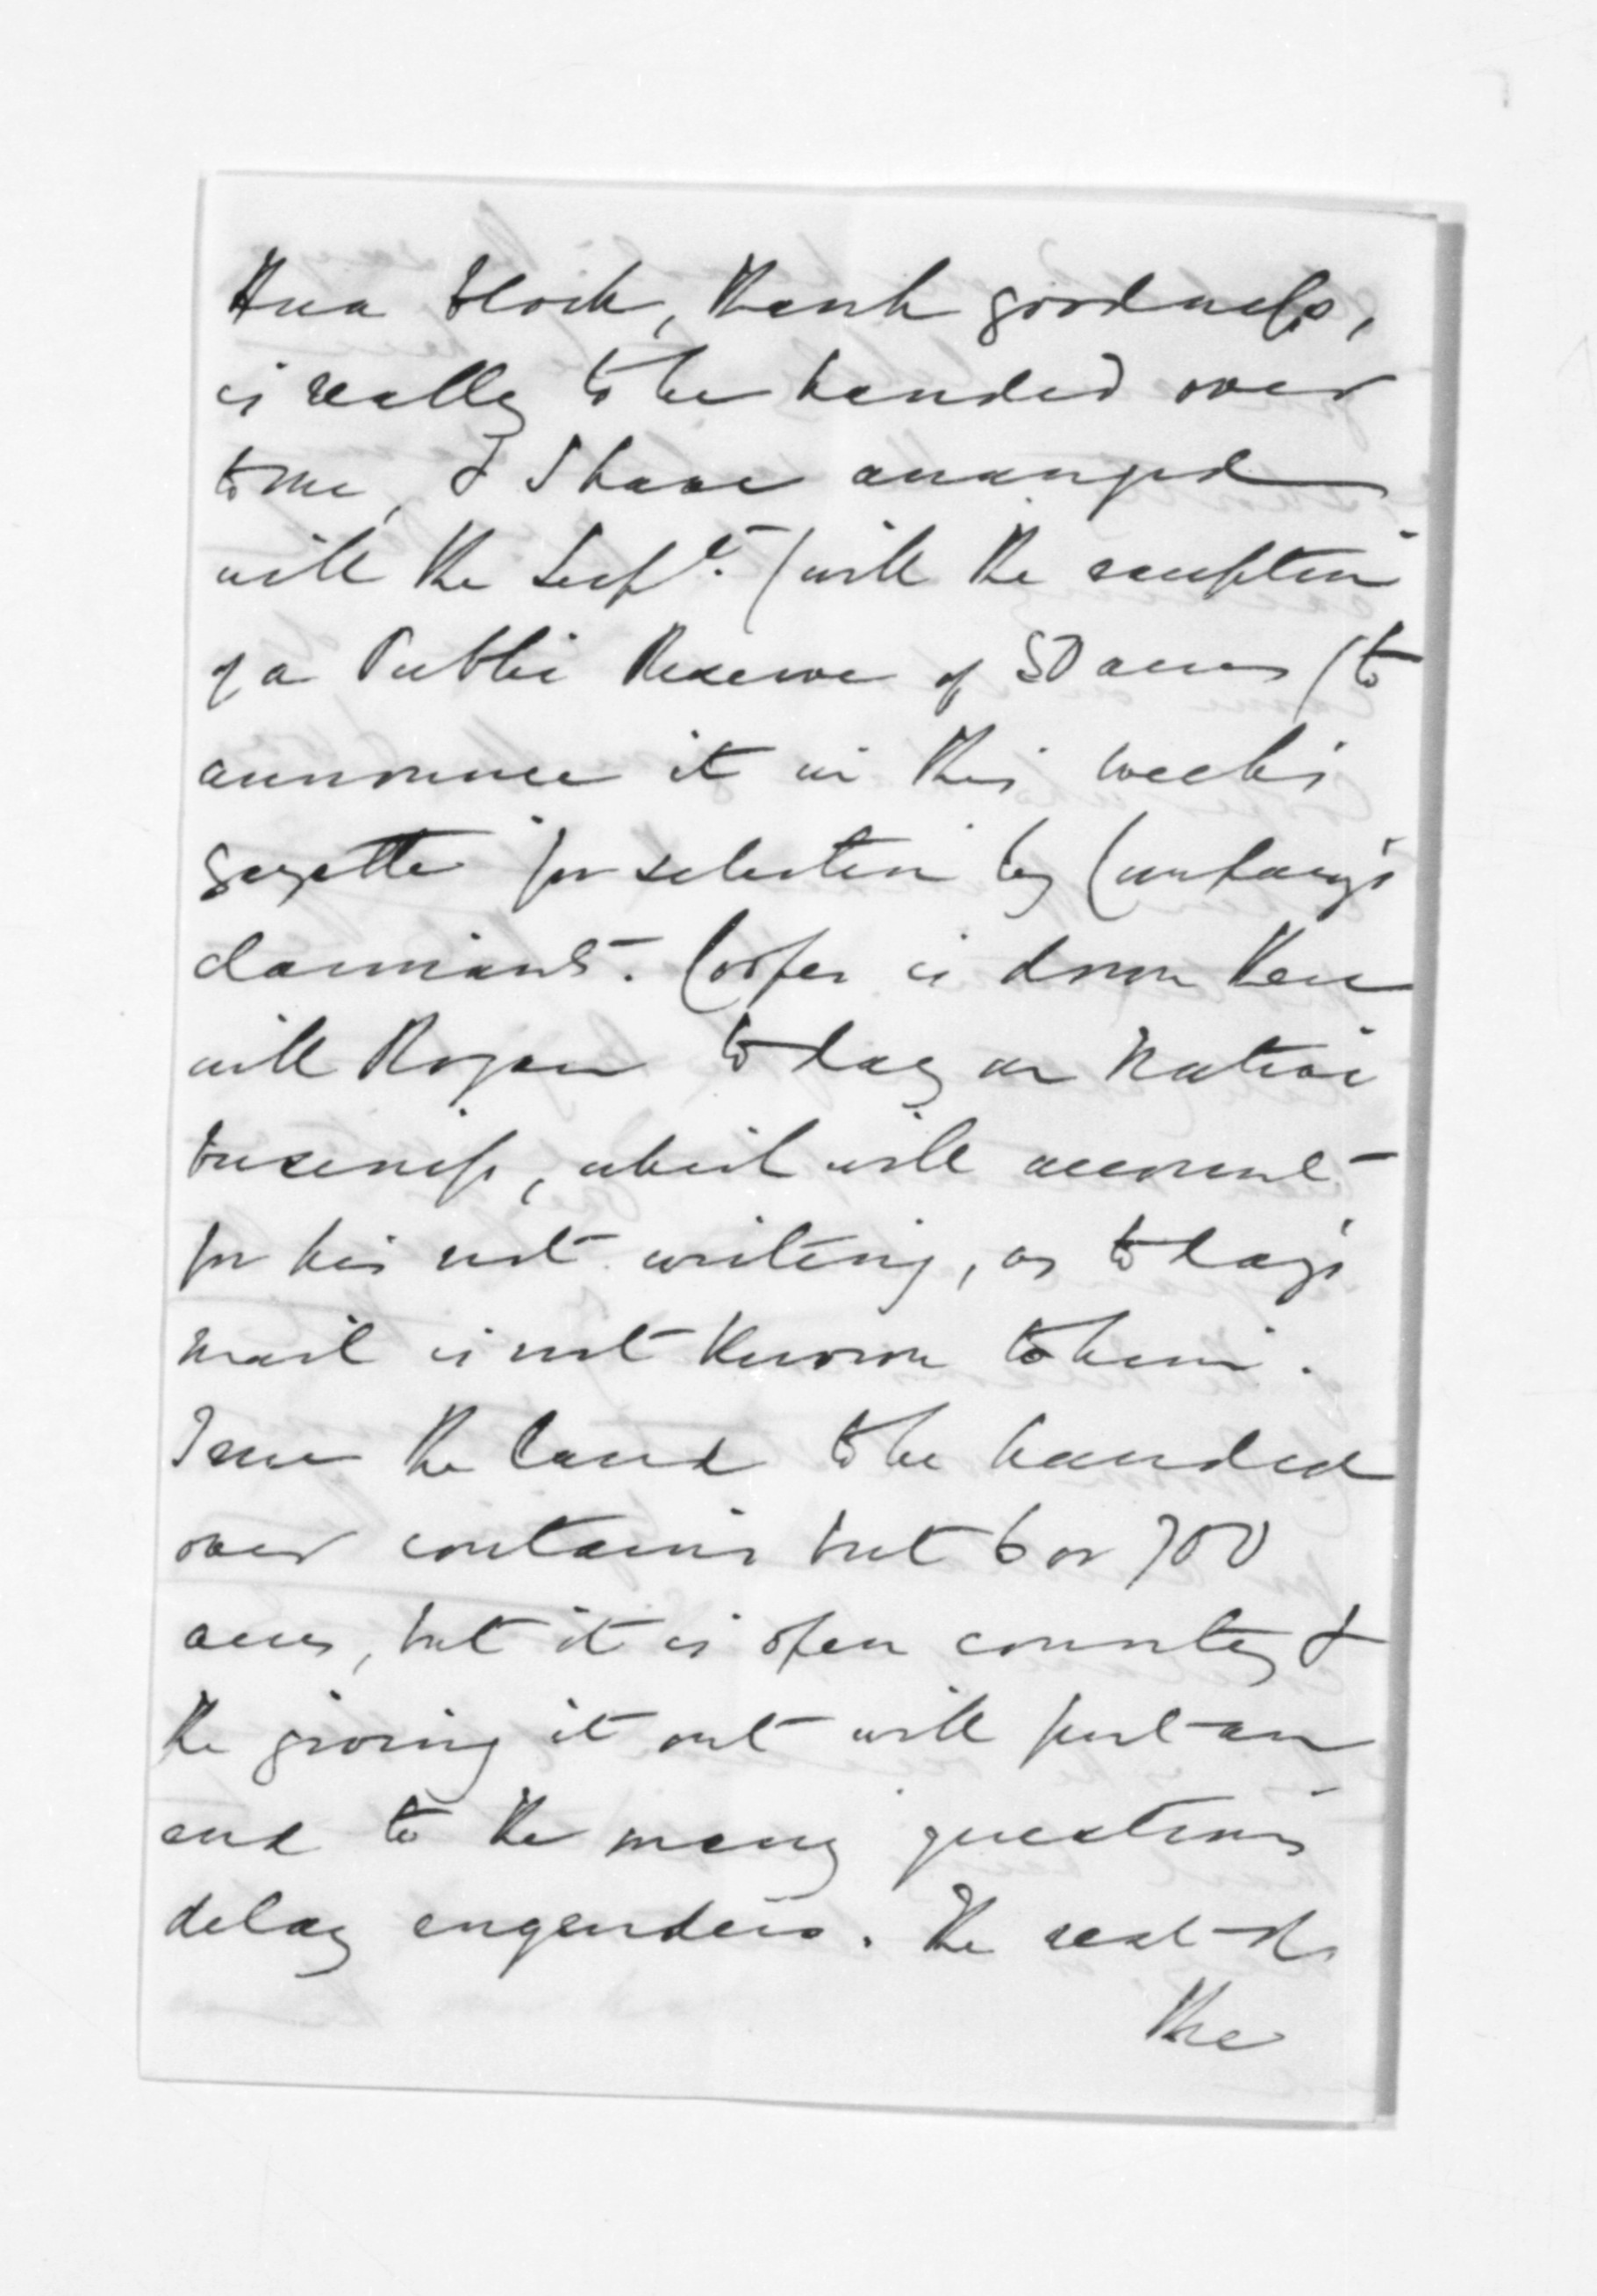 Hua block, thank goodness,
is really to be handed over
to me, & I have arranged
with the Supt. (with the exception
of a Public Reserve of 50 acres) to
announce it in this week's
gazette for selection by Company's
claimants. Cooper is down there
with Rogan to day on Native
business, which will account
for his not writing, as to day's
mail is not known to him.
I am the land to be handed
over contains but 6 or 700
acres, but it is open country &
the giving it out will put an
end to the many questions
delay engenders. The rest of
the